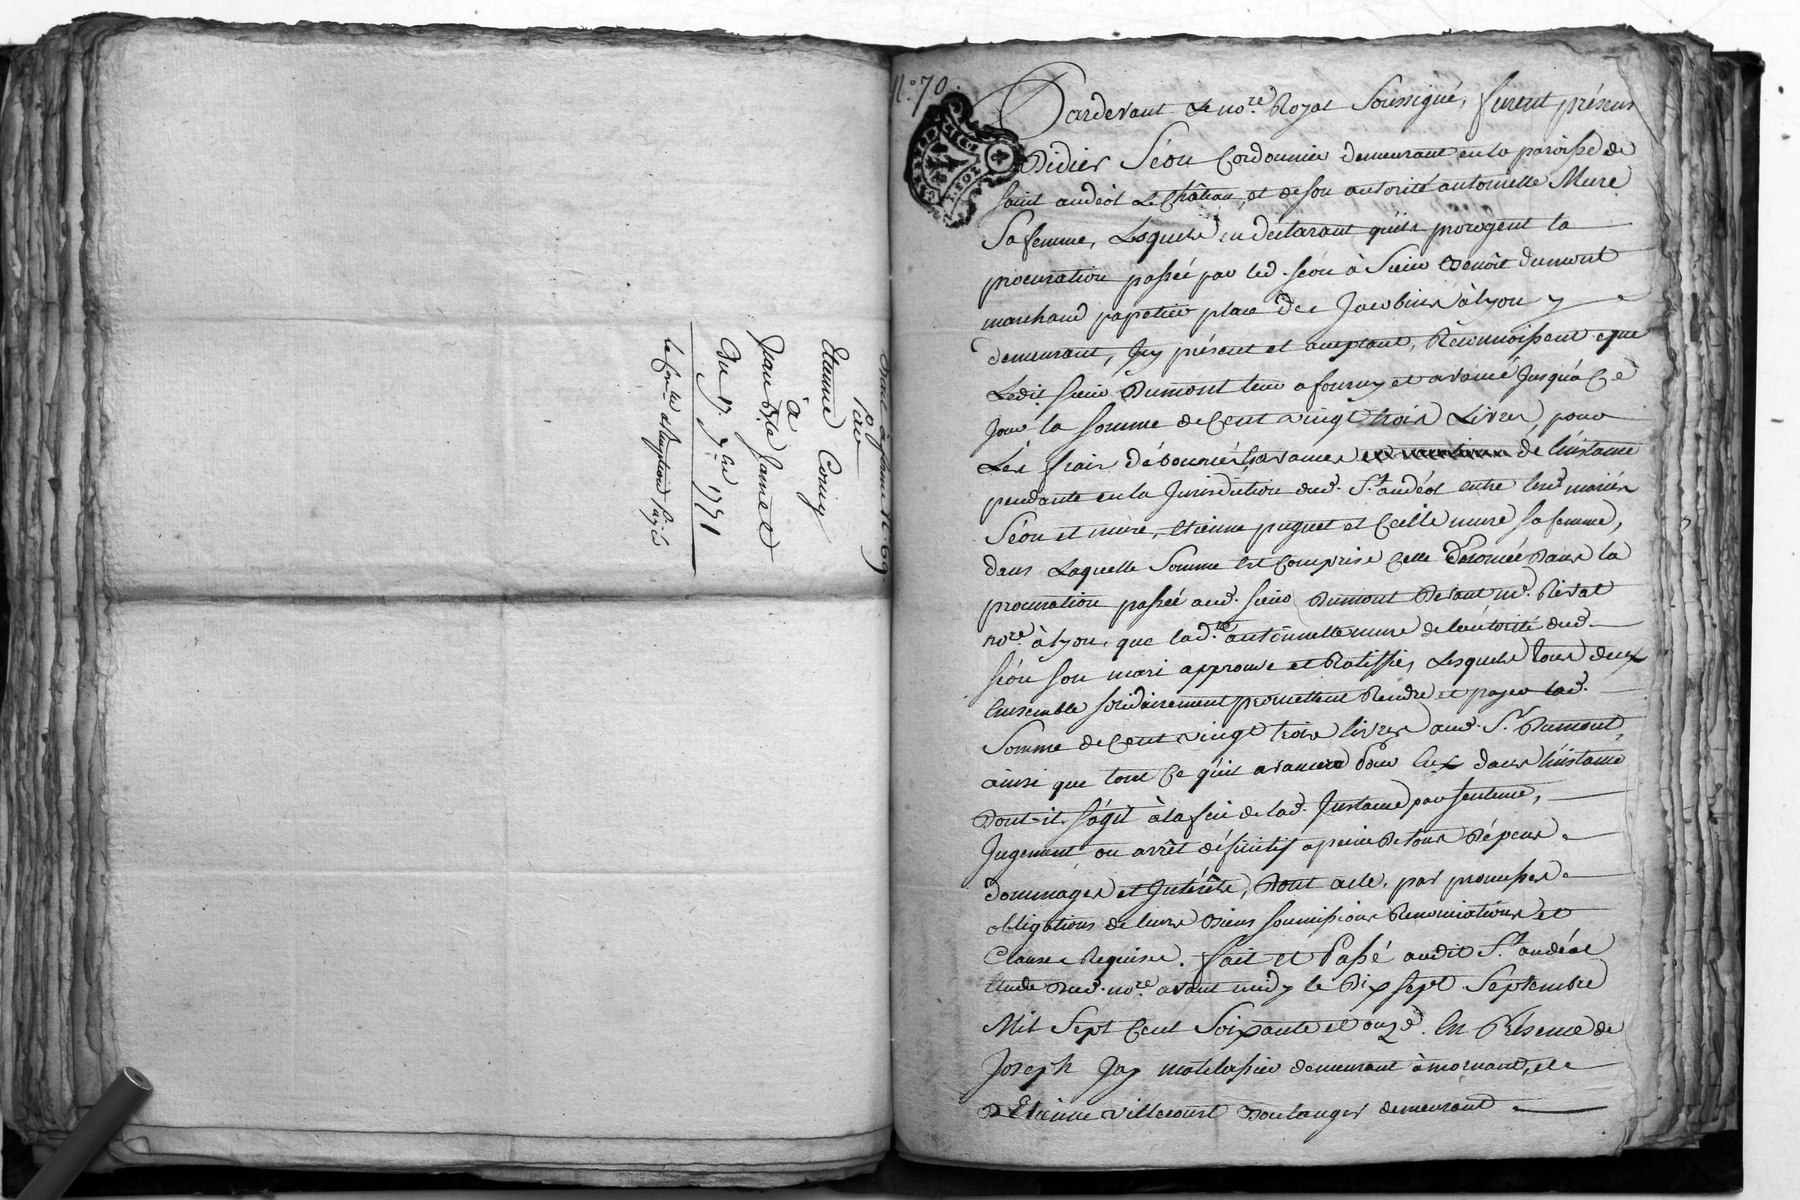 Bail a ferme N.° 69
Pour
Etienne Coing
à
Jean Bte
Du 17 7bre 1771
N.° 70.
Pardevant Le nore. Royal Soussigné, furent présens
Didier Séon Cordonnier demeurant en la paroisse de
saint andéol Le Château, et de son autorité antoinette Mure
Sa femme, Lesquels en declarant qu'ils prorogent la
procuration passée par led. séon à Sieur Benoît dumont
marchand papetier place des Jacobins à lyon y
demeurant, Icy présent et acceptant, Réconnoissent que
Ledit sieur Dumont leur a fourny et avancé Jusqu'à Ce
Jour la somme de Cent vingt trois Livres, pour
Les frais déboursés avances de l'instance
pendante en la Jurisdiction dud. St. andéol entre lesd. mariés
Séon et mure, Etienne puguet et Cécile mure sa femme,
dans Laquelle Somme est Comprise Celle énoncée dans la
procuration passée aud. sieur Dumont Devant me. Rival
nore. à lyon, que lad. antoinette mure de l'autorité dud.
séon son mari approuve et Ratiffie, Lesquels tous deux
Ensemble solidairement promettent Rendre et payer lad.
Somme de Cent vingt trois livres aud. Sr. Dumont,
ainsi que tout Ce qu'il avancera pour Eux dans l'instance
Dont-il s'agit à la fin de lad. Instance par sentence,
Jugement ou arrêt définitif a peine De tous Dépens
dommages et Intérêts, Dont acte, par promesses
obligations de leurs Biens soumissions Renonciations et
Clauses Requises. Fait et Passé audit St. andéol
Etude Dud. nore. avant midy le Dix sept Septembre
Mil Sept Cent Soixante et onze. En Présence de
Joseph Jay matelassier demeurant à mornant, et
D'Etienne villecourt Boulanger demeurant